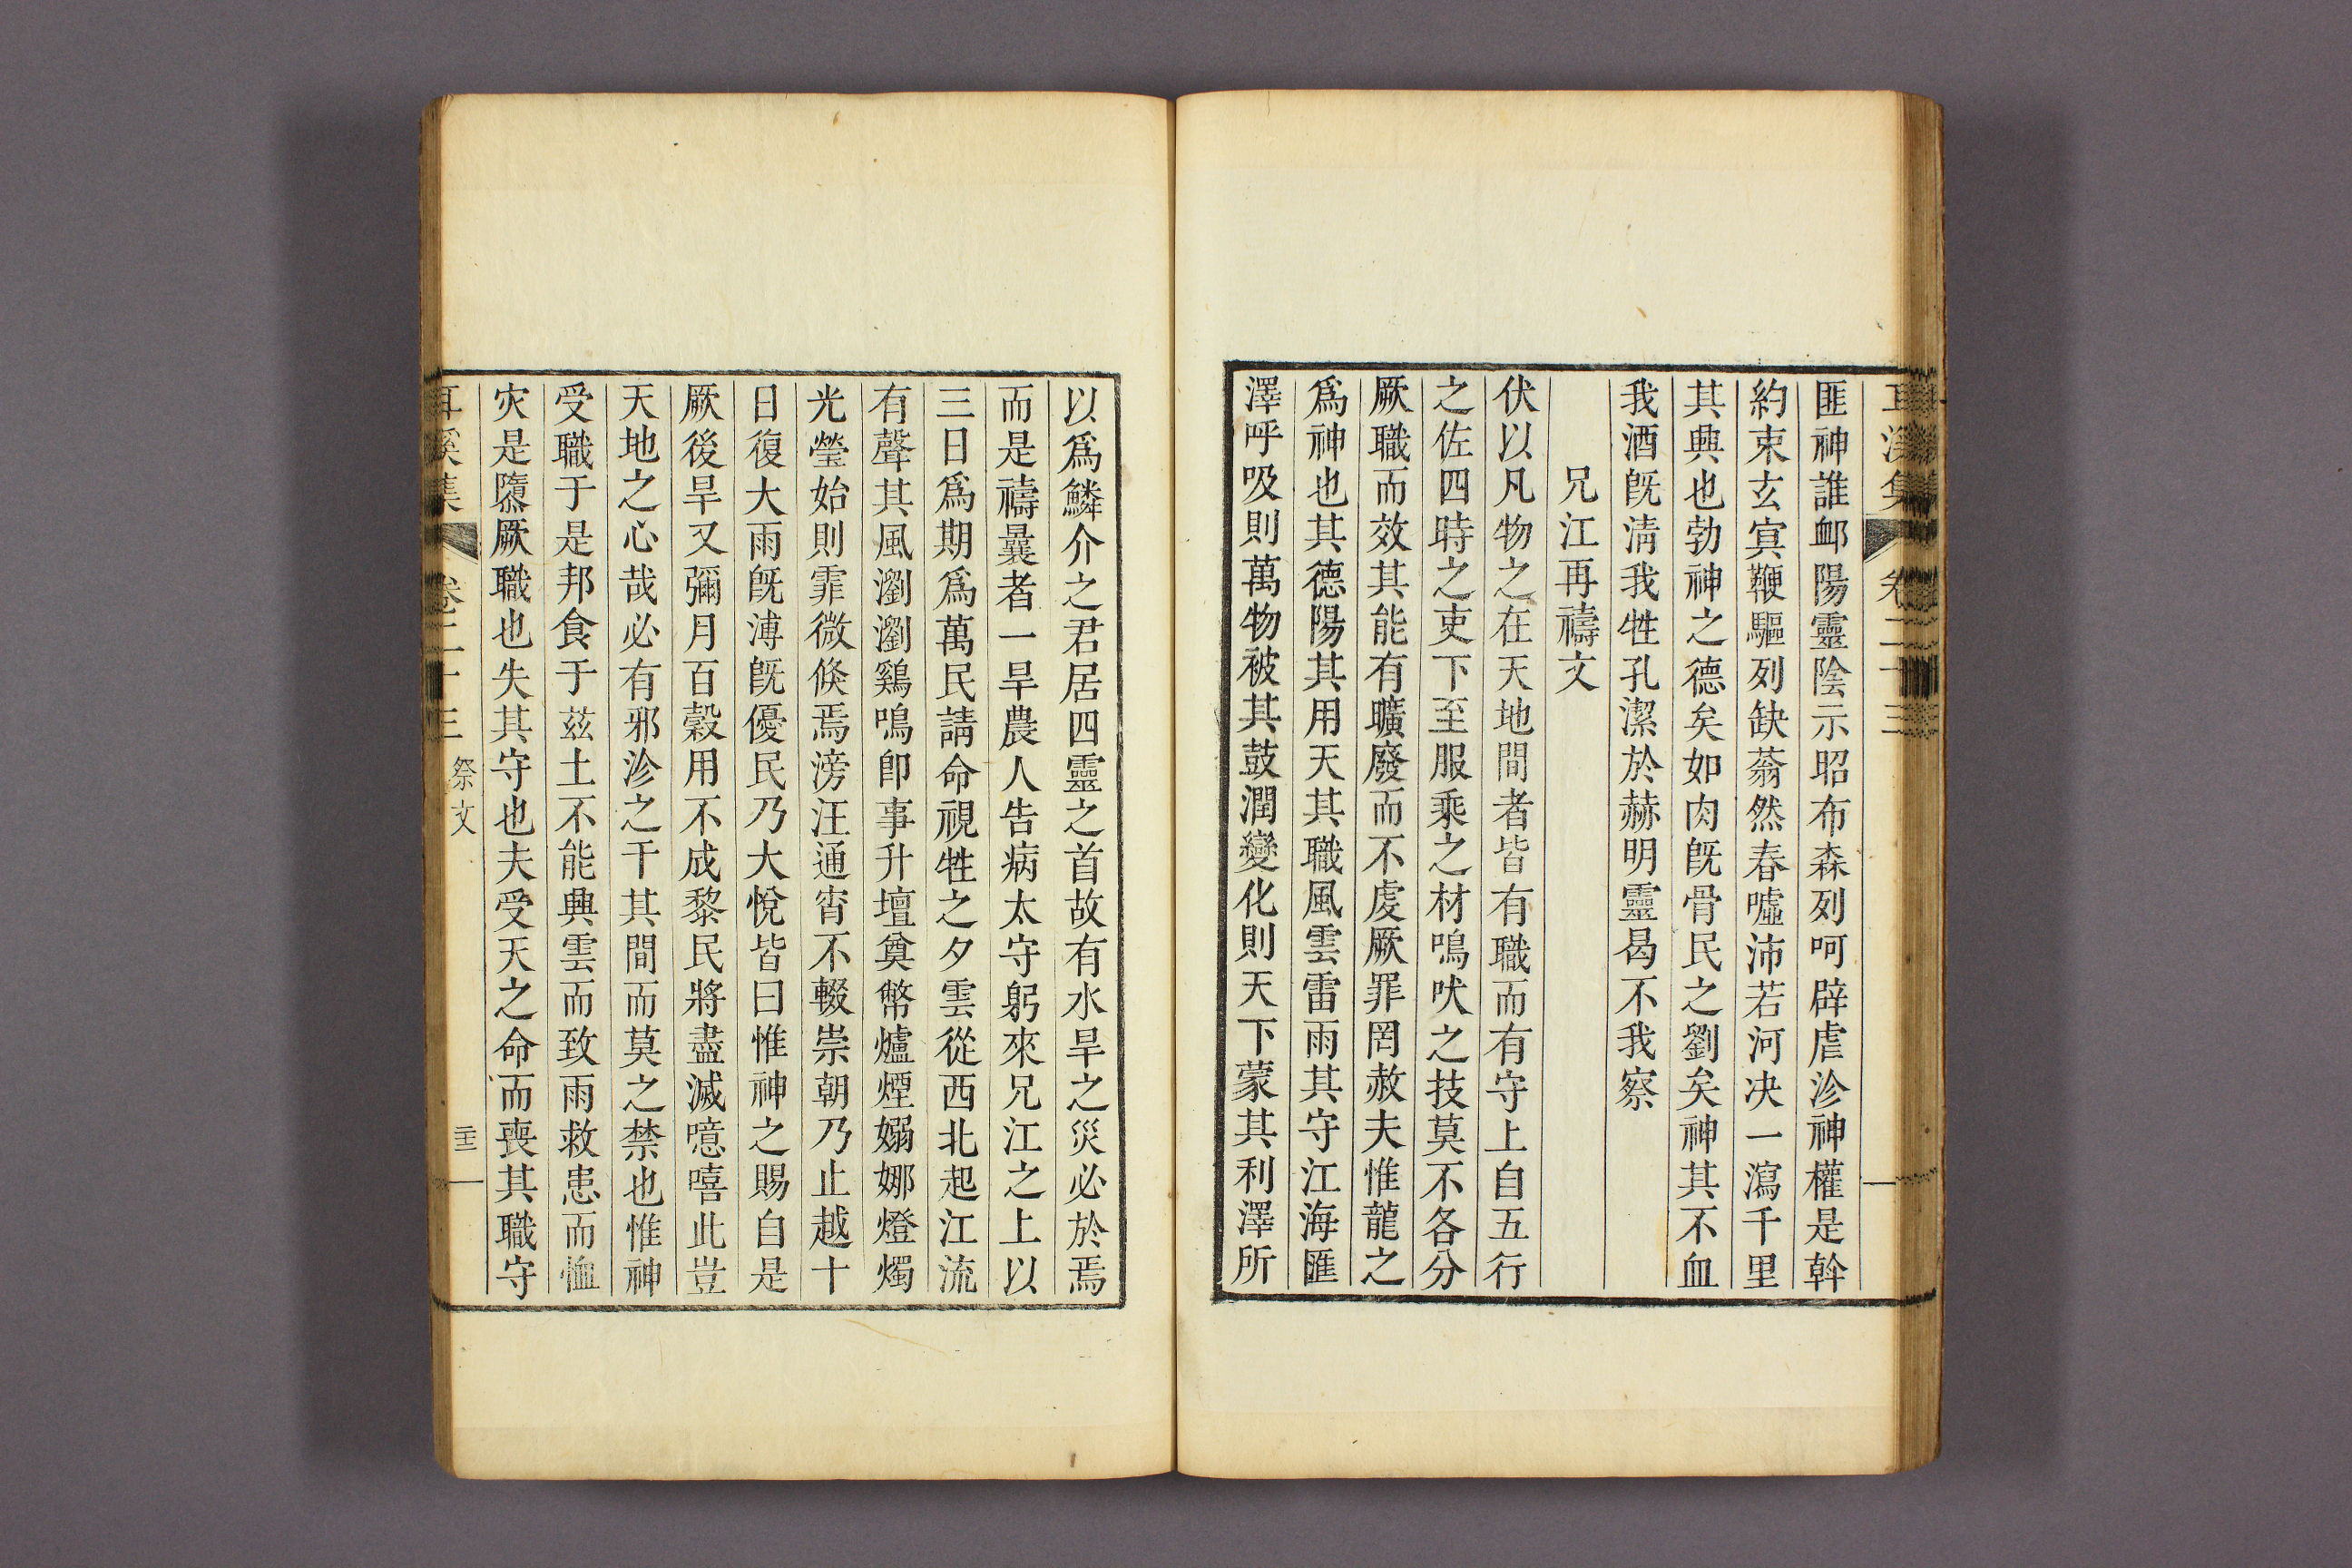 耳溪集 卷二十三
匪神誰䘏陽靈陰示昭布森列呵辟虐沴神權是斡
約束玄冥鞭驅列缺蓊然春噓沛若河决一瀉千里
其興也勃神之德矣如肉旣骨民之劉矣神其不血
我酒旣淸我牲孔潔於赫明靈曷不我察
兄江再禱文
伏以凡物之在天地間者皆有職而有守上自五行
之佐四時之吏下至服乘之材鳴吠之技莫不各分
厥職而效其能有曠廢而不虔厥罪罔赦夫惟龍之
爲神也其德陽其用天其職風雲雷雨其守江海匯
澤呼吸則萬物被其鼓潤變化則天下蒙其利澤所
以爲鱗介之君居四靈之首故有水旱之災必於焉
而是禱曩者一旱農人告病太守躬來兄江之上以
三日爲期爲萬民請命視牲之夕雲從西北起江流
有聲其風瀏瀏鷄鳴卽事升壇奠幣爐煙嫋娜燈燭
光瑩始則霏微倏焉滂汪通宵不輟崇朝乃止越十
日復大雨旣溥旣優民乃大悅皆曰惟神之賜自是
厥後旱又彌月百穀用不成黎民將盡滅噫嘻此豈
天地之心哉必有邪沴之干其間而莫之禁也惟神
受職于是邦食于茲土不能興雲而致雨救患而恤
灾是隳厥職也失其守也夫受天之命而喪其職守
耳溪集 卷二十三 祭文